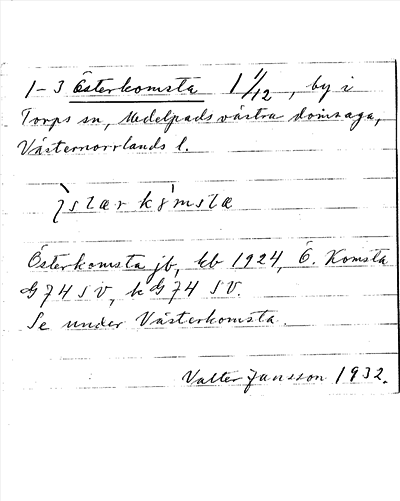 1-3 Österkomsta 1 1/12, by i
Torps sn, Medelpads västra domsaga,
Västernorrlands l.
østær kømsta
Österkomsta jb, kb 1924, Ö. Komsta
G 74 SV, k G 74 SV.
Se under Västerkomsta.
Valter Jansson 1932.